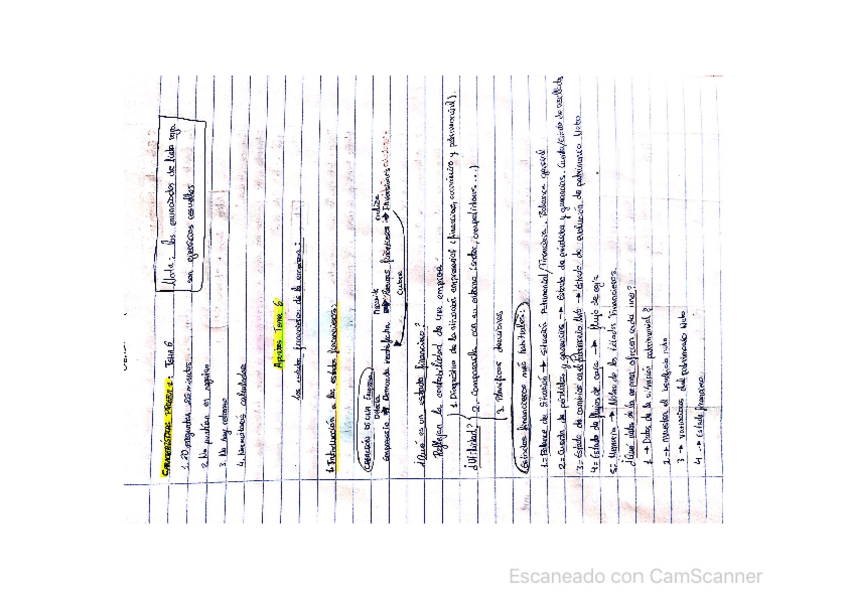 Nota: los enunciados de lista roja
son ejercicios resueltos
CARACTERÍSTICAS PRUEBA 1: Tema 6
1. 20 preguntas 25 minutos
2. No puntúan en negativo
3. No hay retorno
4. Necesitarás calculadora
Apuntes Tema 6
Los estados financieros de la empresa:
1. Introducción a los estados financieros:
CREACIÓN DE UNA EMPRESA
Empresario Demanda insatisfecha Necesita Recursos financieros realiza Inversiones
Cubrir
¿Qué es un estado financiero?
Reflejan la contabilidad de una empresa
1. Diagnóstico de la situación empresarial (financiera, económica y patrimonial).
¿Utilidad? 2. Compararla con su entorno (sector, competidores...)
3. Planificar decisiones
Estados financieros más habituales:
1= Balance de Situación → Situación Patrimonial/Financiera. Balance general
2= Cuenta de pérdidas y ganancias → Estado de pérdidas y ganancias. Cuenta/Estado de resultado
3= Estado de cambios en el patrimonio Neto → Estado de evolución de patrimonio Neto
4= Estado de flujos de caja → Flujo de caja
5= Memoria → Notas de los Estados Financieros
¿Qué datos de la empresa ofrecen cada uno?
1 → Datos de la situación patrimonial
2 → Muestra el beneficio neto
3 → Variaciones del patrimonio Neto
4 → Estado financiero
Escaneado con CamScanner